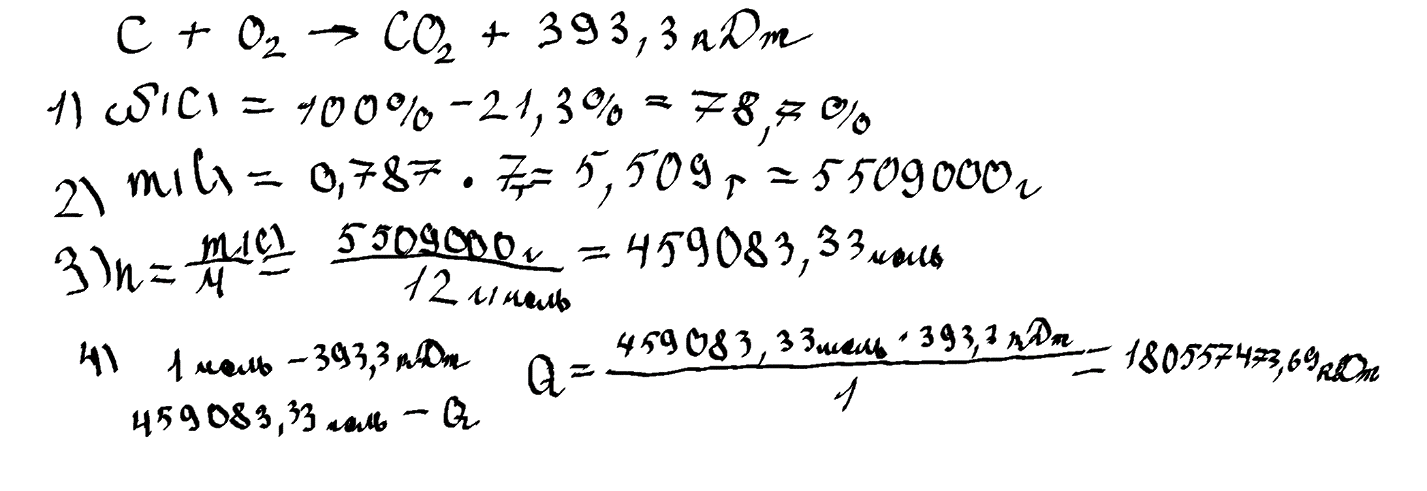 C + O₂ → CO₂ + 393,3 кДж
1) ω(C) = 100% - 21,3% = 78,7%
2) m(C) = 0,787 · 7т = 5,509 т = 5509000 г
3) n = m(C)/M = 5509000 г/12 г/моль = 459083,33 моль
4) 1 моль - 393,3 кДж Q = 459083,33 моль · 393,3 кДж/1 = 180557473,69 кДж
459083,33 моль - Q